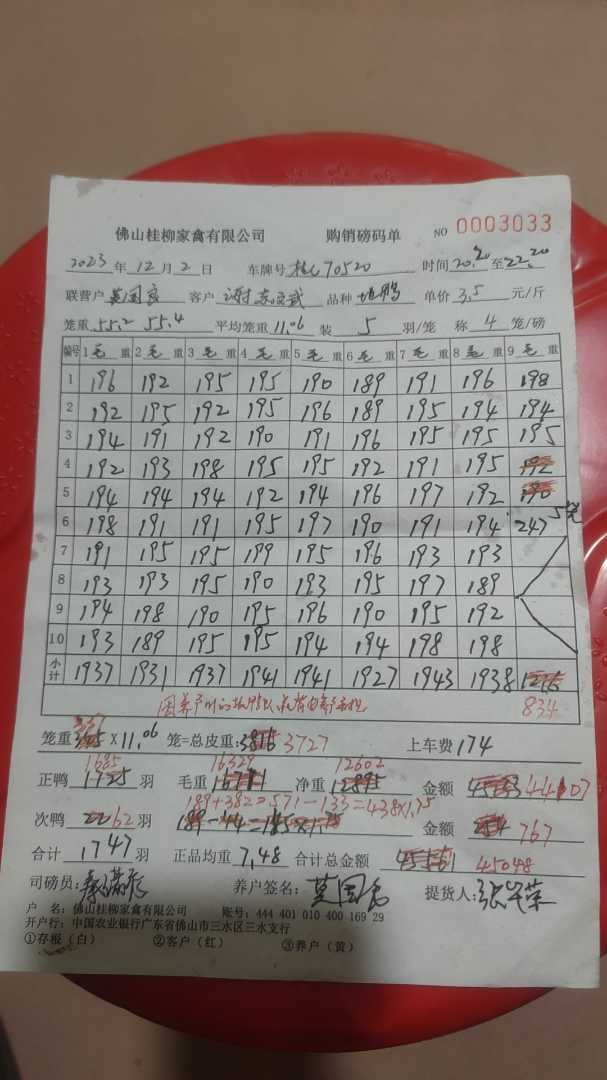 佛山桂柳家禽有限公司 购销磅码单 NO 0003033
2023 年 12 月 2 日 车牌号 70520 时间 20:20 至 22:20
联营户 莫国良 客户 谢 武 品种 鸭 单价 3.5 元/斤
笼重 55.2 55.4 平均笼重 11.06 装 5 羽/笼 称 4 笼/磅
编号 1 毛 重 2 毛 重 3 毛 重 4 毛 重 5 毛 重 6 毛 重 7 毛 重 8 毛 重 9 毛 重
1 196 192 195 195 190 189 191 196 198
2 192 195 192 195 196 189 195 194 194
3 194 191 192 190 191 196 195 195 195
4 192 193 198 195 195 192 191 195 192
5 194 194 194 192 194 196 197 192 190
6 198 191 191 195 197 190 191 194 247 5笼
7 191 195 195 199 195 196 193 193
8 193 193 195 190 193 195 197 189
9 194 198 190 195 196 190 195 192
10 193 189 195 195 194 194 198 198
小计 1937 1931 1937 1941 1941 1927 1943 1938
834
337
笼重 X 11.06 笼=总皮重: 3727 上车费 174
1685 16329 12602
正鸭 1725 羽 毛重 净重 12895 金额 44107
189+382=571-133=438×1.75
次鸭 62 羽 金额 767
合计 1747 羽 正品均重 7.48 合计总金额 45048
司磅员: 养户签名: 莫国良 提货人: 张 荣
户 名: 佛山桂柳家禽有限公司 账号: 444 401 010 400 169 29
开户行: 中国农业银行广东省佛山市三水区三水支行
①存根(白) ②客户(红) ③养户(黄)